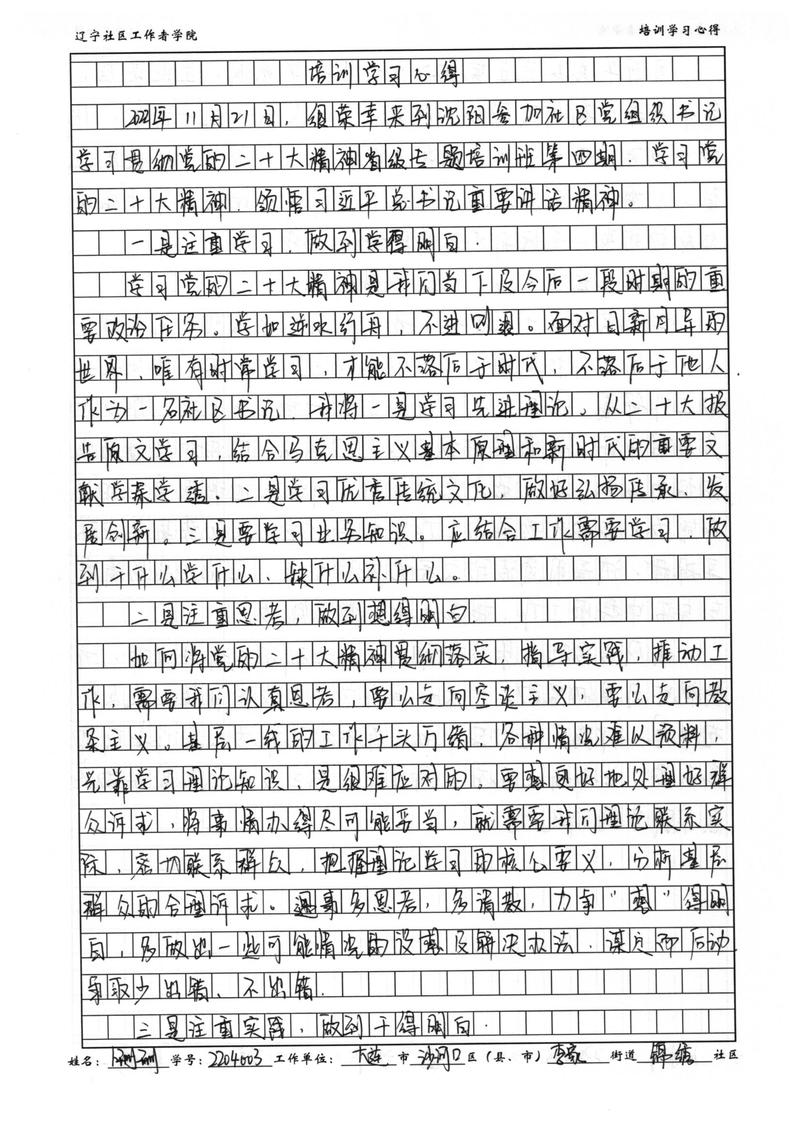 辽宁社区工作者学院 培训学习心得
培训学习心得
2022年11月21日，很荣幸来到沈阳参加社区党组织书记
学习贯彻党的二十大精神省级专题培训班第四期．学习党
的二十大精神．领悟习近平总书记重要讲话精神。
一是注重学习．做到学得明白．
学习党的二十大精神是我们当下及今后一段时期的重
要政治任务。学如逆水行舟，不进则退。面对日新月异的
世界，唯有时常学习，才能不落后于时代，不落后于他人
作为一名社区书记．我将一是学习先进理论，从二十大报
告原文学习，结合马克思主义基本原理和新时代的重要文
献学深学透。二是学习优秀传统文化，做好弘扬传承、发
展创新。三是要学习业务知识。应结合工作需要学习．做
到干什么学什么、缺什么补什么。
二是注重思考，做到想得明白．
如何将党的二十大精神贯彻落实，指导实践，推动工
作，需要我们认真思考，要么走向空谈主义，要么走向教
条主义。基层一线的工作千头万绪．各种情况难以预料，
光靠学习理论知识，是很难应对的，要想更好地处理好群
众诉求，将事情办得尽可能妥当，就需要我们理论联系实
际，密切联系群众，把握理论学习的核心要义，分析基层
群众的合理诉求。遇事多思考，多请教，力争“想”得明
白，多做出一些可能情况的设想及解决办法．谋定而后动
争取少出错、不出错．
三是注重实践，做到干得明白．
姓名： 学号：2204003 工作单位：大连 市 沙河口 区（县、市） 李家 街道 锦绣 社区